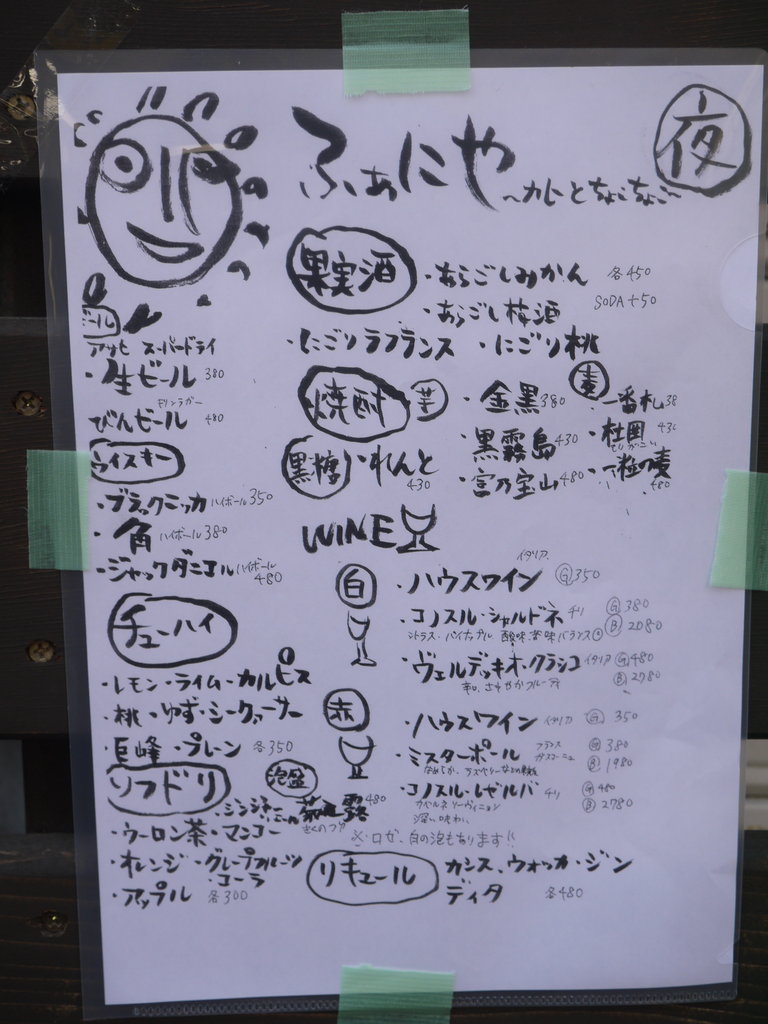 夜
ふぁにや
〜カレーとちょこちょこ〜
ビール
アサヒ スーパードライ
・生ビール 380
キリンラガー
びんビール 480
ウイスキー
・ブラックニッカ ハイボール 350
・角 ハイボール 380
・ジャックダニエル ハイボール 480
チューハイ
・レモン・ライム・カルピス
・桃・ゆず・シークヮーサー
・巨峰・プレーン 各350
ソフドリ
・ジンジャー
・ウーロン茶・マンゴー
・オレンジ・グレープフルーツ
・コーラ
・アップル 各300
果実酒
・あらごしみかん 各450
・あらごし梅酒 SODA+50
・にごりラフランス ・にごり桃
焼酎
芋
・金黒 380
・黒霧島 430
・宮乃宝山 480
麦
・一番札 38
・杜囲 430
・一粒の麦 480
黒糖 かれんと 430
WINE
白
・ハウスワイン イタリア Ⓖ350
・コノスル・シャルドネ チリ Ⓖ380
シトラス・パイナップル 酸味・苦味バランス◎ Ⓑ2080
・ヴェルデッキオ・クラシコ イタリア Ⓖ480
辛口、さわやかフルーティ Ⓑ2780
赤
・ハウスワイン イタリア Ⓖ350
・ミスターポール フランス ガスコーニュ Ⓖ380
Ⓑ1980
・コノスル・レゼルバ チリ Ⓖ480
カベルネ ソーヴィニヨン Ⓑ2780
深い味わい
泡盛
菊之露 480
きくのつゆ
※ロゼ、白の泡もあります!!
リキュール
カシス、ウォッカ・ジン
ディタ 各480